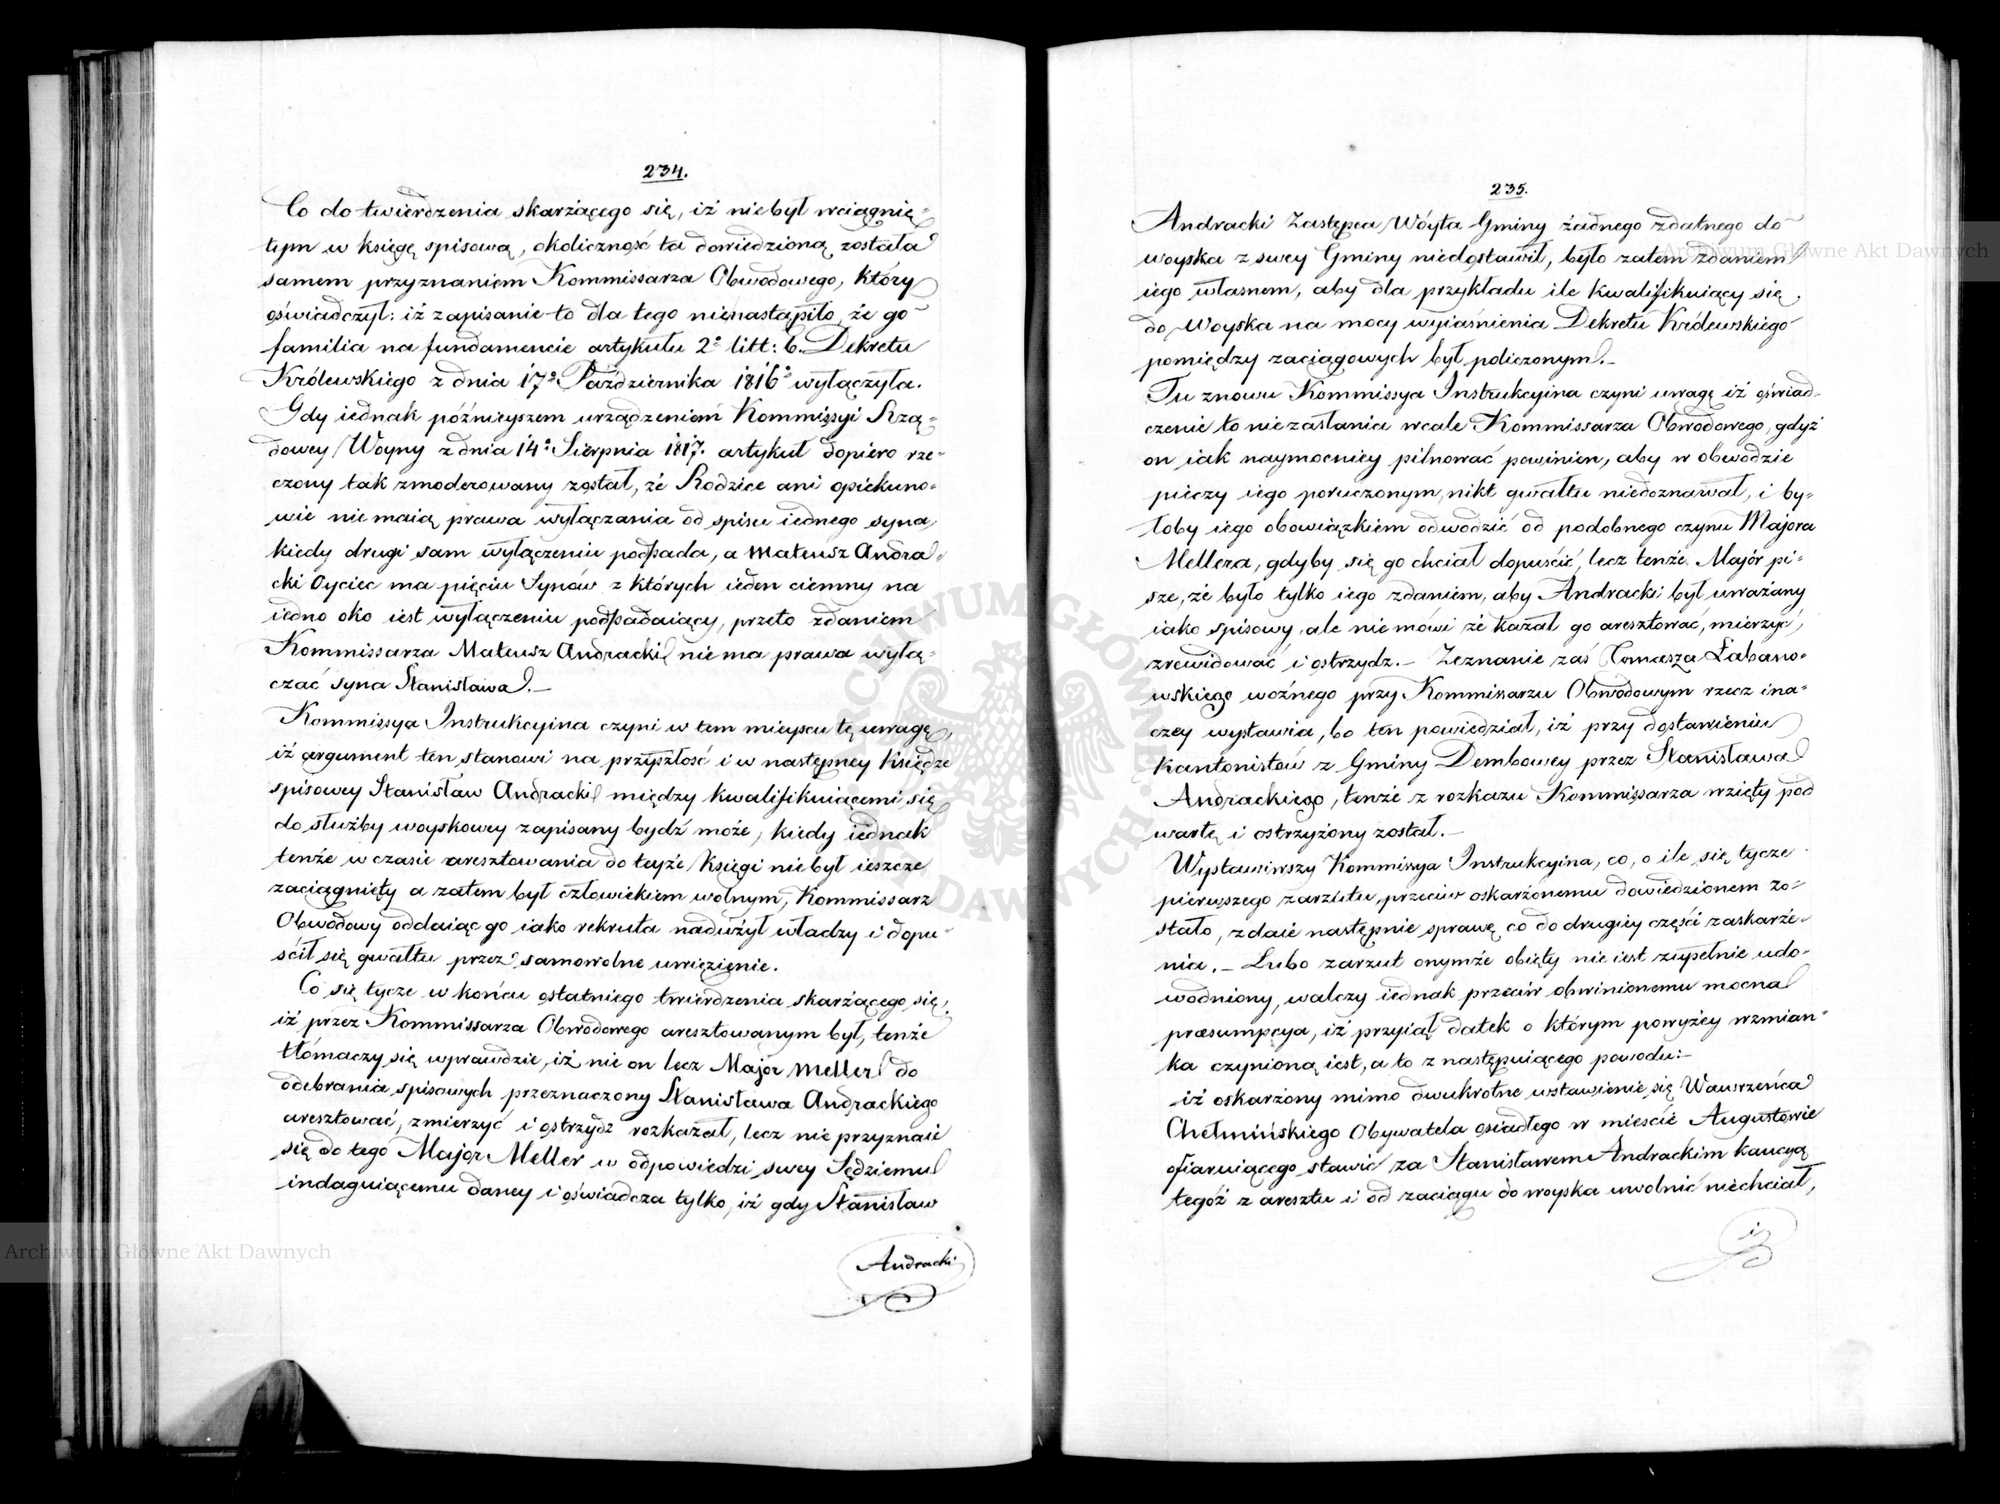 234.
Co do twierdzenia skarżącego się, iż niebył wciągnię-
tym w księgę spisową, okoliczność ta dowiedzioną została
samem przyznaniem Kommissarza Obwodowego, który
oświadczył: iż zapisanie to dla tego nienastąpiło, że go
familia na fundamencie artykułu 2º litt: b. Dekretu
Królewskiego z dnia 17º Października 1816º wyłączyła.
Gdy iednak późnieyszem urządzeniem Kommissyi Rzą-
dowey Woyny z dnia 14º Sierpnia 1817. artykuł dopiero rze-
czony tak zmoderowany został, że Rodzice ani opiekuno-
wie nie maią prawa wyłączania od spisu iednego syna,
kiedy drugi sam wyłączeniu podpada, a Mateusz Andra-
cki Oyciec ma pięciu Synów z których ieden ciemny na
iedno oko iest wyłączeniu podpadaiący, przeto zdaniem
Kommissarza Mateusz Andracki nie ma prawa wyłą-
czać syna Stanisława.—
Kommissya Instrukcyina czyni w tem mieyscu tę uwagę,
iż argument ten stanowi na przyszłość i w następney Księdze
spisowey Stanisław Andracki między kwalifikuiącemi się
do służby woyskowey zapisany bydź może, kiedy iednak
tenże w czasie aresztowania do teyże Księgi nie był ieszcze
zaciągnięty a zatem był człowiekiem wolnym, Kommissarz
Obwodowy oddaiąc go iako rekruta nadużył władzy i dopu-
ścił się gwałtu przez samowolne uwięzienie.
Co się tycze w końcu ostatniego twierdzenia skarżącego się,
iż przez Kommissarza Obwodowego aresztowanym był, tenże
tłómaczy się wprawdzie, iż nie on lecz Major Meller do
odebrania spisowych przeznaczony Stanisława Andrackiego
aresztować, zmierzyć i ostrzydz rozkazał, lecz nie przyznaie
się do tego Major Meller w odpowiedzi swey Sędziemu
indaguiącemu daney i oświadcza tylko, iż gdy Stanisław
Andracki
235.
Andracki Zastępca Wóyta Gminy żadnego zdatnego do
woyska z swey Gminy niedostawił, było zatem zdaniem
iego własnem, aby dla przykładu ile kwalifikuiący się
do Woyska na mocy wyiaśnienia Dekretu Królewskiego
pomiędzy zaciągowych był policzonym.—
Tu znowu Kommissya Instrukcyina czyni uwagę iż oświad-
czenie to niezasłania wcale Kommissarza Obwodowego, gdyż
on iak naymocniey pilnować powinien, aby w obwodzie
pieczy iego poruczonym nikt gwałtu niedoznawał, i by-
łoby iego obowiązkiem odwodzić od podobnego czynu Majora
Mellera, gdyby się go chciał dopuścić, lecz tenże Major pi-
sze, że było tylko iego zdaniem, aby Andracki był uważany
iako spisowy, ale nie mówi że kazał go aresztować, mierzyć,
zrewidować i ostrzydz.— Zeznanie zaś Tomasza Łabano-
wskiego woźnego przy Kommissarzu Obwodowym rzecz ina-
czey wystawia, bo ten powiedział, iż przy dostawieniu
Kantonistów z Gminy Dembowey przez Stanisława
Andrackiego, tenże z rozkazu Kommissarza wzięty pod
wartę i ostrzyżony został.—
Wystawiwszy Kommissya Instrukcyina, co, o ile się tycze
pierwszego zarzutu, przeciw oskarżonemu dowiedzionem zo-
stało, zdaie następnie sprawę co do drugiey części zaskarże-
nia.— Lubo zarzut onymże obięty nie iest zupełnie udo-
wodniony, walczy iednak przeciw obwinionemu mocna
præsumpcya, iż przyiął datek o którym powyżey wzmian-
ka czynioną iest, a to z następuiącego powodu:—
iż oskarżony mimo dwukrotne wstawienie się Wawrzeńca
Chełmińskiego Obywatela osiadłego w mieście Augustowie
ofiaruiącego stawić za Stanisławem Andrackim kaucyą
tegoż z aresztu i od zaciągu do woyska uwolnić niechciał,
iż
Archiwum Główne Akt Dawnych
Archiwum Główne Akt Dawnych
ARCHIWUM GŁÓWNE AKT DAWNYCH